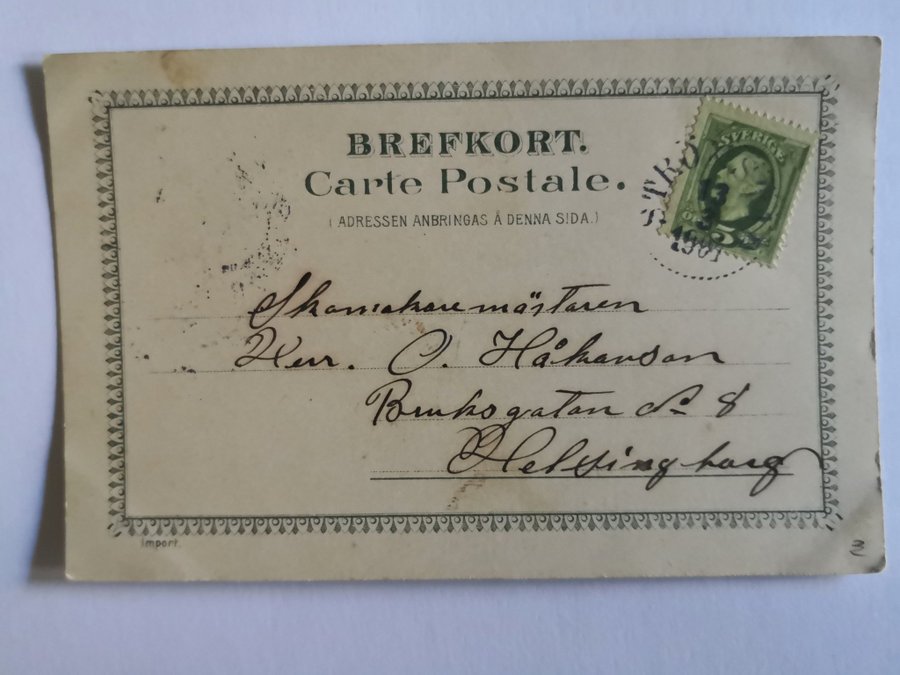 BREFKORT.
Carte Postale.
(ADRESSEN ANBRINGAS Å DENNA SIDA.)
SVERIGE
STRÖ
13
3
1901
5
Skomakaremästaren
Herr. O. Håkanson
Bruksgatan No 8
Helsingborg
Import.
3